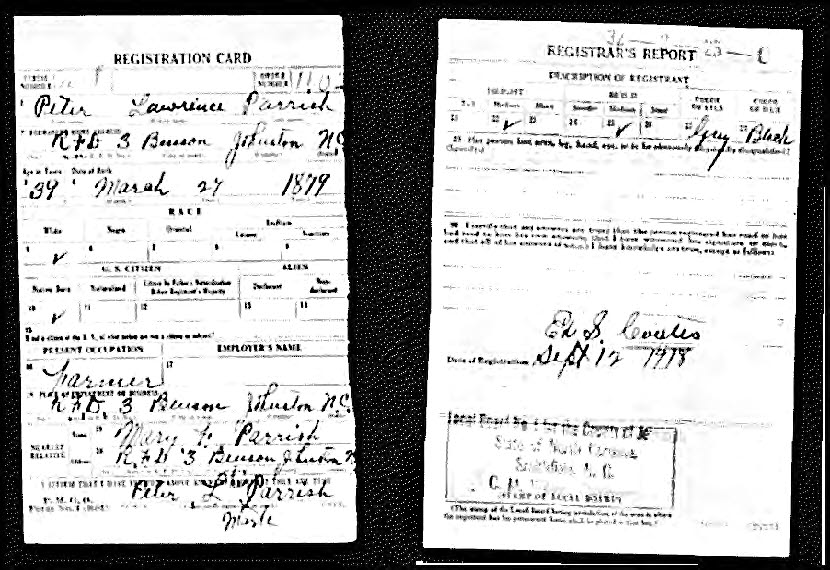 REGISTRATION CARD
SERIAL NUMBER
ORDER NUMBER
Peter Lawrence Parrish
PERMANENT HOME ADDRESS
RFD 3 Benson Johnston NC
Age in Years Date of Birth
39 March 27 1879
RACE
White Negro Oriental Indian
Citizen Noncitizen
U. S. CITIZEN ALIEN
Native Born Naturalized Citizen by Father's Naturalization Before Registrant's Majority Declarant Non-declarant
10 11 12 13 14
15
If not a citizen of the U. S., of what nation are you a citizen or subject?
PRESENT OCCUPATION EMPLOYER'S NAME
16 17
Farmer
PLACE OF EMPLOYMENT OR BUSINESS
RFD. 3 Benson Johnston NC
NEAREST RELATIVE
Name 19 Mary Parrish
Address 20 R.F.D 3 Benson Johnston N
I AFFIRM THAT I HAVE VERIFIED ABOVE ANSWERS AND THAT THEY ARE TRUE
P. M. G. O.
Form No. 1 (Red)
Peter L Parrish
REGISTRAR'S REPORT
DESCRIPTION OF REGISTRANT
HEIGHT BUILD COLOR OF EYES COLOR OF HAIR
Tall Medium Short Slender Medium Stout
21 22 23 24 25 26 27 Gray 28 Black
29 Has person lost arm, leg, hand, eye, or is he obviously physically disqualified?
(Specify.)
30 I certify that my answers are true; that the person registered has read or has
had read to him his own answers; that I have witnessed his signature or mark
and that all of his answers of which I have knowledge are true, except as follows:
Ed S. Coates
Date of Registration Sept 12 1918
Local Board No. 1 for the County of
State of North Carolina
Smithfield, N. C.
(STAMP OF LOCAL BOARD)
(The stamp of the Local Board having jurisdiction of the area in which
the registrant has his permanent home shall be placed in this box.)